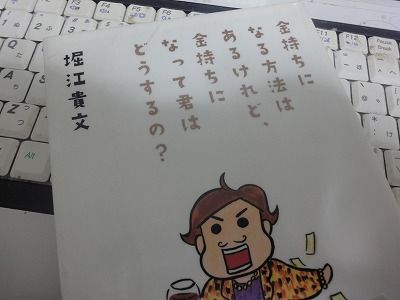 金持ちに
なる方法は
あるけれど、
金持ちに
なって君は
どうするの？
堀江貴文